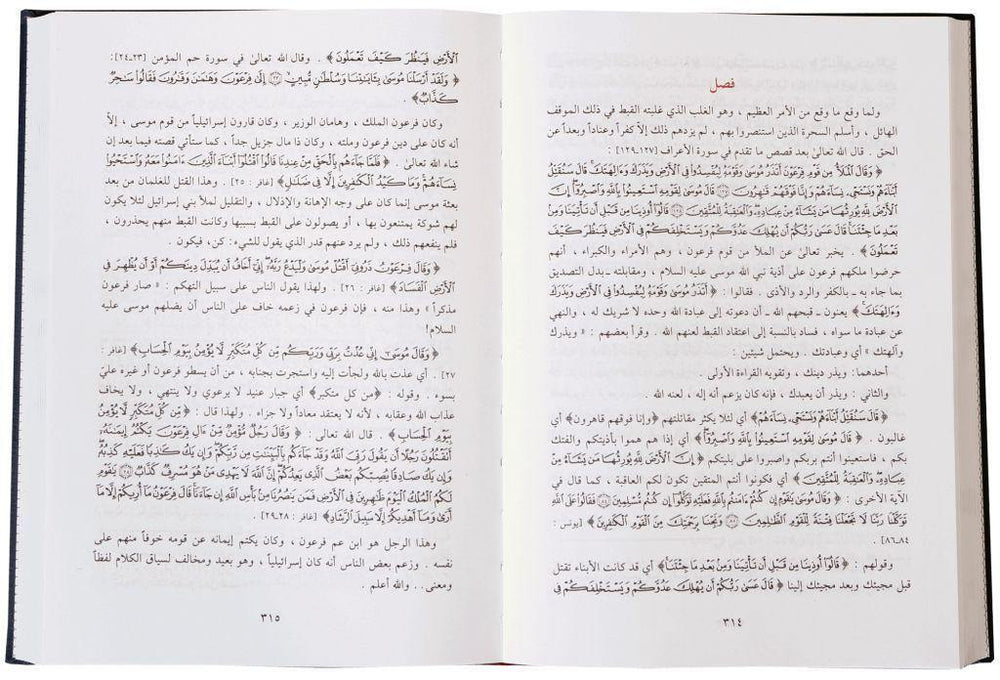 فصل
ولما وقع ما وقع من الأمر العظيم ، وهو الغلب الذي غلبته القبط في ذلك الموقف
الهائل ، وأسلم السحرة الذين استنصروا بهم ، لم يزدهم ذلك إلا كفراً وعناداً وبعداً عن
الحق . قال الله تعالىٰ بعد قصص ما تقدم في سورة الأعراف [١٢٧ـ١٢٩] :
﴿ وَقَالَ الْمَلَأُ مِن قَوْمِ فِرْعَوْنَ أَتَذَرُ مُوسَىٰ وَقَوْمَهُ لِيُفْسِدُوا فِي الْأَرْضِ وَيَذَرَكَ وَآلِهَتَكَ ۚ قَالَ سَنُقَتِّلُ
أَبْنَاءَهُمْ وَنَسْتَحْيِي نِسَاءَهُمْ وَإِنَّا فَوْقَهُمْ قَاهِرُونَ ﴿١٢٧﴾ قَالَ مُوسَىٰ لِقَوْمِهِ اسْتَعِينُوا بِاللَّهِ وَاصْبِرُوا ۖ إِنَّ
الْأَرْضَ لِلَّهِ يُورِثُهَا مَن يَشَاءُ مِنْ عِبَادِهِ ۖ وَالْعَاقِبَةُ لِلْمُتَّقِينَ ﴿١٢٨﴾ قَالُوا أُوذِينَا مِن قَبْلِ أَن تَأْتِيَنَا وَمِن
بَعْدِ مَا جِئْتَنَا ۚ قَالَ عَسَىٰ رَبُّكُمْ أَن يُهْلِكَ عَدُوَّكُمْ وَيَسْتَخْلِفَكُمْ فِي الْأَرْضِ فَيَنظُرَ كَيْفَ
تَعْمَلُونَ ﴾ . يخبر تعالىٰ عن الملأ من قوم فرعون ، وهم الأمراء والكبراء ، أنهم
حرضوا ملكهم فرعون على أذية نبي الله موسى عليه السلام ، ومقابلته ـ بدل التصديق
بما جاء به ـ بالكفر والرد والأذى . فقالوا : ﴿ أَتَذَرُ مُوسَىٰ وَقَوْمَهُ لِيُفْسِدُوا فِي الْأَرْضِ وَيَذَرَكَ
وَآلِهَتَكَ ﴾ يعنون ـ قبحهم الله ـ أن دعوته إلى عبادة الله وحده لا شريك له ، والنهي
عن عبادة ما سواه ، فساد بالنسبة إلى اعتقاد القبط لعنهم الله . وقرأ بعضهم : « ويذرك
وآلهتك » أي وعبادتك . ويحتمل شيئين :
أحدهما: ويذر دينك ، وتقويه القراءة الأولى .
والثاني : ويذر أن يعبدك ، فإنه كان يزعم أنه إله ، لعنه الله .
﴿ قَالَ سَنُقَتِّلُ أَبْنَاءَهُمْ وَنَسْتَحْيِي نِسَاءَهُمْ ﴾ أي لئلا يكثر مقاتلتهم ﴿وإنا فوقهم قاهرون﴾ أي
غالبون . ﴿ قَالَ مُوسَىٰ لِقَوْمِهِ اسْتَعِينُوا بِاللَّهِ وَاصْبِرُوا ﴾ أي إذا هم هموا بأذيتكم والفتك
بكم ، فاستعينوا أنتم بربكم واصبروا على بليتكم ﴿ إِنَّ الْأَرْضَ لِلَّهِ يُورِثُهَا مَن يَشَاءُ مِنْ
عِبَادِهِ ۖ وَالْعَاقِبَةُ لِلْمُتَّقِينَ ﴾ أي فكونوا أنتم المتقين تكون لكم العاقبة ، كما قال في
الآية الأخرى : ﴿ وَقَالَ مُوسَىٰ يَا قَوْمِ إِن كُنتُمْ آمَنتُم بِاللَّهِ فَعَلَيْهِ تَوَكَّلُوا إِن كُنتُم مُّسْلِمِينَ ﴿٨٤﴾ فَقَالُوا عَلَى اللَّهِ
تَوَكَّلْنَا رَبَّنَا لَا تَجْعَلْنَا فِتْنَةً لِّلْقَوْمِ الظَّالِمِينَ ﴿٨٥﴾ وَنَجِّنَا بِرَحْمَتِكَ مِنَ الْقَوْمِ الْكَافِرِينَ ﴾ [يونس :
٨٤ـ٨٦] .
وقولهم : ﴿ قَالُوا أُوذِينَا مِن قَبْلِ أَن تَأْتِيَنَا وَمِن بَعْدِ مَا جِئْتَنَا ﴾ أي قد كانت الأبناء تقتل
قبل مجيئك وبعد مجيئك إلينا ﴿ قَالَ عَسَىٰ رَبُّكُمْ أَن يُهْلِكَ عَدُوَّكُمْ وَيَسْتَخْلِفَكُمْ فِي
٣١٤
الْأَرْضِ فَيَنظُرَ كَيْفَ تَعْمَلُونَ ﴾ . وقال الله تعالىٰ في سورة حم المؤمن [٢٣ـ٢٤] :
﴿ وَلَقَدْ أَرْسَلْنَا مُوسَىٰ بِآيَاتِنَا وَسُلْطَانٍ مُّبِينٍ ﴿٢٣﴾ إِلَىٰ فِرْعَوْنَ وَهَامَانَ وَقَارُونَ فَقَالُوا سَاحِرٌ
كَذَّابٌ ﴾ .
وكان فرعون الملك ، وهامان الوزير ، وكان قارون إسرائيلياً من قوم موسى ، إلاّ
أنه كان على دين فرعون وملئه ، وكان ذا مال جزيل جداً ، كما ستأتي قصته فيما بعد إن
شاء الله تعالىٰ . ﴿ فَلَمَّا جَاءَهُم بِالْحَقِّ مِنْ عِندِنَا قَالُوا اقْتُلُوا أَبْنَاءَ الَّذِينَ آمَنُوا مَعَهُ وَاسْتَحْيُوا
نِسَاءَهُمْ ۚ وَمَا كَيْدُ الْكَافِرِينَ إِلَّا فِي ضَلَالٍ ﴾ [غافر : ٢٥] . وهذا القتل للغلمان من بعد
بعثة موسى إنما كان على وجه الإهانة والإذلال ، والتقليل لملأ بني إسرائيل لئلا يكون
لهم شوكة يمتنعون بها ، أو يصولون على القبط بسببها وكانت القبط منهم يحذرون ،
فلم ينفعهم ذلك ، ولم يرد عنهم قدر الذي يقول للشيء: كن، فيكون .
﴿ وَقَالَ فِرْعَوْنُ ذَرُونِي أَقْتُلْ مُوسَىٰ وَلْيَدْعُ رَبَّهُ ۖ إِنِّي أَخَافُ أَن يُبَدِّلَ دِينَكُمْ أَوْ أَن يُظْهِرَ فِي
الْأَرْضِ الْفَسَادَ ﴾ [غافر : ٢٦] . ولهذا يقول الناس على سبيل التهكم : « صار فرعون
مذكراً » وهذا منه ، فإن فرعون في زعمه خاف على الناس أن يضلهم موسى عليه
السلام!
﴿ وَقَالَ مُوسَىٰ إِنِّي عُذْتُ بِرَبِّي وَرَبِّكُم مِّن كُلِّ مُتَكَبِّرٍ لَّا يُؤْمِنُ بِيَوْمِ الْحِسَابِ ﴾ [غافر :
٢٧] . أي عذت بالله ولجأت إليه واستجرت بجنابه ، من أن يسطو فرعون أو غيره عليّ
بسوء . وقوله : ﴿من كل متكبر﴾ أي جبار عنيد لا يرعوي ولا ينتهي ، ولا يخاف
عذاب الله وعقابه ، لأنه لا يعتقد معاداً ولا جزاء . ولهذا قال : ﴿ مِّن كُلِّ مُتَكَبِّرٍ لَّا يُؤْمِنُ
بِيَوْمِ الْحِسَابِ ﴾ . قال الله تعالى : ﴿ وَقَالَ رَجُلٌ مُّؤْمِنٌ مِّنْ آلِ فِرْعَوْنَ يَكْتُمُ إِيمَانَهُ
أَتَقْتُلُونَ رَجُلًا أَن يَقُولَ رَبِّيَ اللَّهُ وَقَدْ جَاءَكُم بِالْبَيِّنَاتِ مِن رَّبِّكُمْ ۖ وَإِن يَكُ كَاذِبًا فَعَلَيْهِ كَذِبُهُ ۖ
وَإِن يَكُ صَادِقًا يُصِبْكُم بَعْضُ الَّذِي يَعِدُكُمْ ۖ إِنَّ اللَّهَ لَا يَهْدِي مَنْ هُوَ مُسْرِفٌ كَذَّابٌ ﴿٢٨﴾ يَا قَوْمِ
لَكُمُ الْمُلْكُ الْيَوْمَ ظَاهِرِينَ فِي الْأَرْضِ فَمَن يَنصُرُنَا مِن بَأْسِ اللَّهِ إِن جَاءَنَا ۚ قَالَ فِرْعَوْنُ مَا أُرِيكُمْ إِلَّا مَا
أَرَىٰ وَمَا أَهْدِيكُمْ إِلَّا سَبِيلَ الرَّشَادِ ﴾ [غافر : ٢٨ـ٢٩] .
وهذا الرجل هو ابن عم فرعون ، وكان يكتم إيمانه عن قومه خوفاً منهم على
نفسه . وزعم بعض الناس أنه كان إسرائيلياً ، وهو بعيد ومخالف لسياق الكلام لفظاً
ومعنى . . والله أعلم .
٣١٥